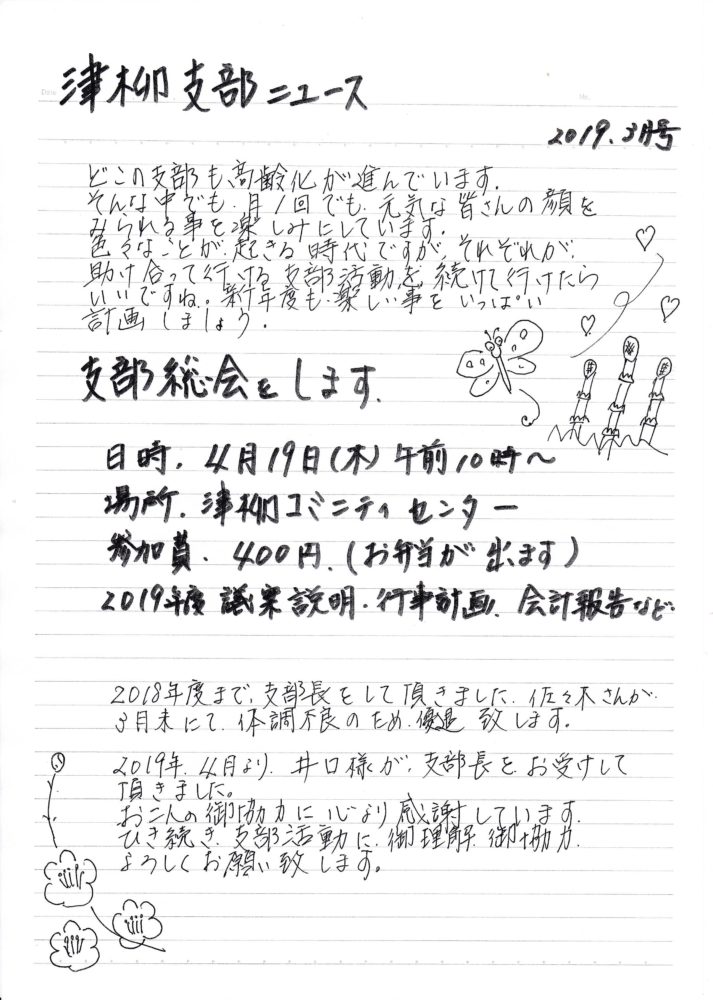 津柳支部ニュース
2019.3月号
どこの支部も、高齢化が進んでいます.
そんな中でも.月1回でも.元気な皆さんの顔を
みられる事を楽しみにしています.
色々なことが.起きる時代ですが.それぞれが.
助け合って行ける支部活動を.続けて行けたら
いいですね。新年度も.楽しい事をいっぱい
計画しましょう.
支部総会をします.
日時.4月19日(木)午前10時〜
場所.津柳コミニティセンター
参加費.400円.(お弁当が出ます)
2019年度議案説明.行事計画.会計報告など
2018年度まで.支部長をして頂きました.佐々木さんが
3月末にて.体調不良のため.優退致します.
2019年.4月より.井口様が.支部長をお受けして
頂きました。
お二人の御協力に心より感謝しています.
ひき続き.支部活動に.御理解.御協力.
よろしくお願い致します。
Date
No.